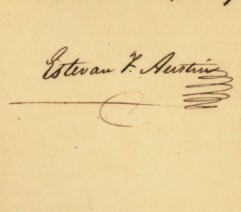 Estevan F. Austin